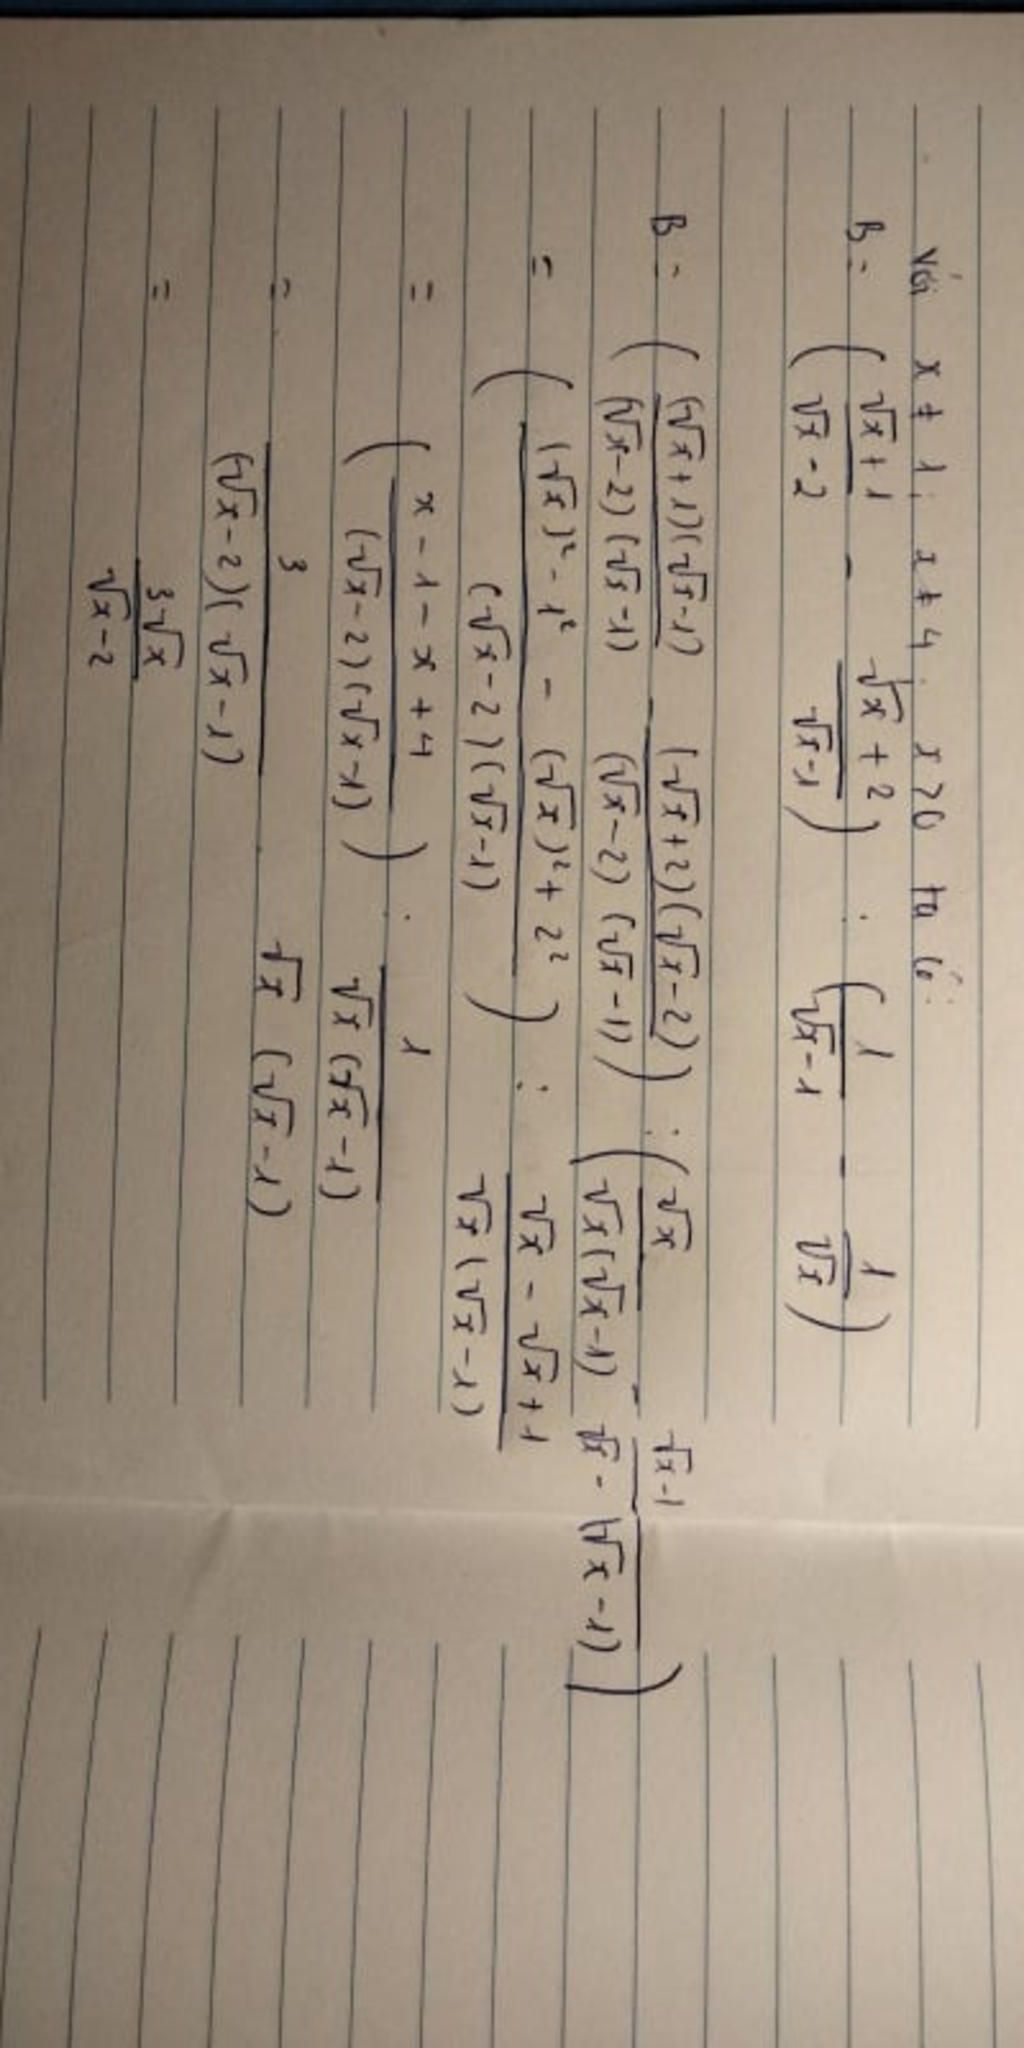 Với x ≠ 1; x ≠ 4. x > 0 ta có:
B = ( (√x + 1)/(√x - 2) - (√x + 2)/(√x - 1) ) : ( 1/(√x - 1) - 1/√x )
B = ( (√x + 1)(√x - 1)/(√x - 2)(√x - 1) - (√x + 2)(√x - 2)/(√x - 2)(√x - 1) ) : ( √x/√x(√x - 1) - √x - 1/√x - (√x - 1) )
= ( (√x)² - 1² - (√x)² + 2²/(√x - 2)(√x - 1) ) : √x - √x + 1/√x(√x - 1)
= ( x - 1 - x + 4/(√x - 2)(√x - 1) ) : 1/√x(√x - 1)
= 3/(√x - 2)(√x - 1) . √x (√x - 1)
= 3√x/√x - 2